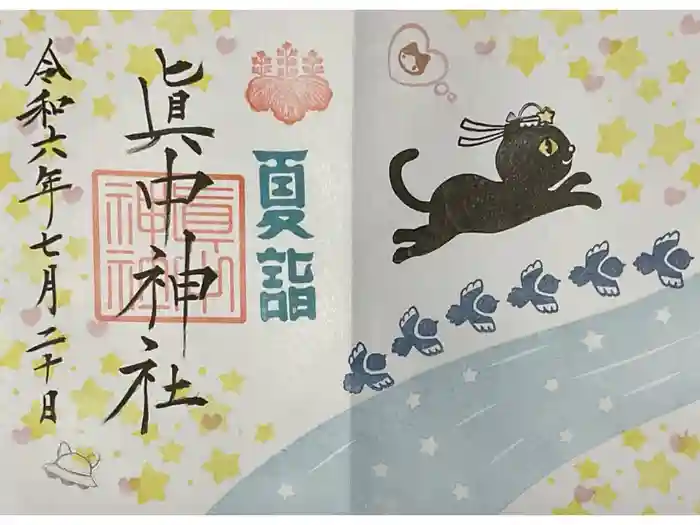 夏詣
眞中神社
眞中
神社
令和六年七月二十日